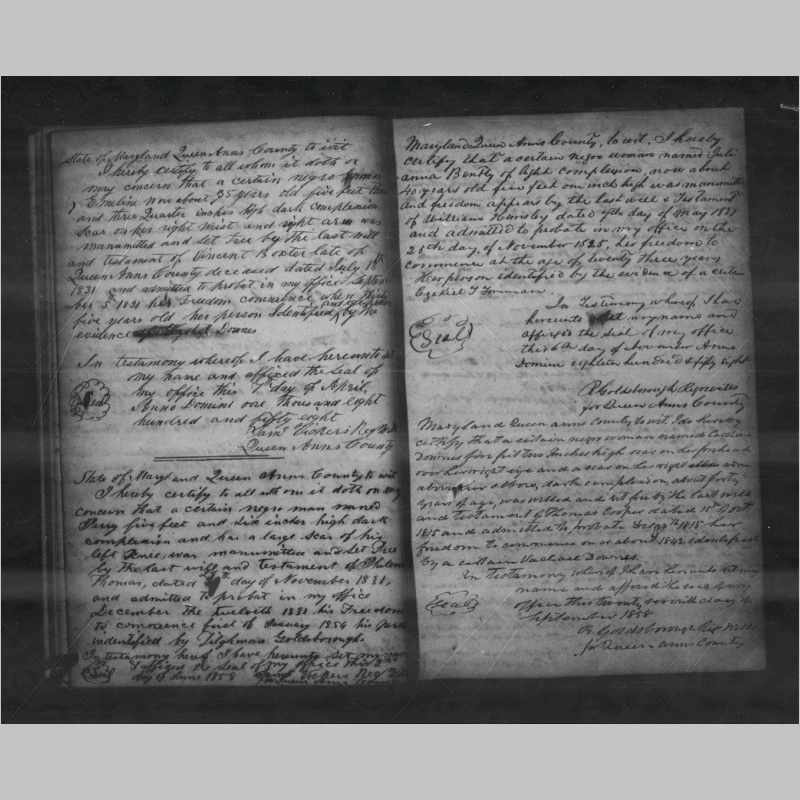 State of Maryland Queen Anns County to wit
I hereby certify to all whom it doth or
may concern that a certain negro
Emeline now about 35 years old five feet
and three Quarter inches high dark complexion
Scar on her right wrist and right arm was
manumitted and Set Free by the last will
and testament of Vincent Boxter late of
Queen Anns County deceased dated July 18th
1831 and admitted to probat in my office
ber 5 1831 her Freedom commence when
five years old her person Identified by the
evidence Downes
In testimony whereof I have hereunto
my name and affixed the Seal of
my office this day of April
Anno Domini one thousand eight
hundred and fifty eight
Seal
Saml Vickers Reg
Queen Anns County
State of Maryland Queen Anns County to wit
I hereby certify to all whom it doth or may
concern that a certain negro man named
Perry five feet and six inches high dark
complexion and has a large Scar of his
left Knee, was manumitted and Set Free
by the last will and testament of
Thomas, dated day of November 1831,
and admitted to probat in my office
December the twelvth 1831 his Freedom
to commence first of January 1854 his
indentified by Tilghman Goldsborough.
In testimony hereof I have hereunto set my
& affixed the Seal of my office this
day of June 1858
Seal
Saml Vickers Reg
Queen Anns
Maryland Queen Anns County, to wit, I hereby
certify that a certain negro woman named Juli
anna Bently of light complexion, now about
40 years old five feet one inch high was manumitted
and freedom appears by the last will & Testament
of William Hansby dated day of May 1821
and admitted to probate in my office on the
day, of November 1825, her freedom to
commence at the age of twenty three years
Her person identified by the evidence of a
Ezekiel T Forman
In Testimony whereof, I have
hereunto set my name and
affixed the Seal of my office
this 6th day of November Anno
Domini eighteen hundred & fifty eight
Seal
P Goldsborough Register
for Queen Anns County
Maryland Queen anns County to wit, I do hereby
certify that a certain negro woman named
Downes five feet two Inches high scar on her forehead
over her right eye and a scar on her right arm
above her elbow, dark complexion, about forty
years of age, was willed and set free by the last will
and testament of Thomas Cooper dated 15
1815 and admitted to probate 1815 her
freedom to commence on or about 1842 identified
by a certain Downes.
In Testimony whereof I have hereunto set my
name and affixed the seal of my
office this twenty day of
September 1858
Seal
P. Goldsborough Reg
for Queen anns County